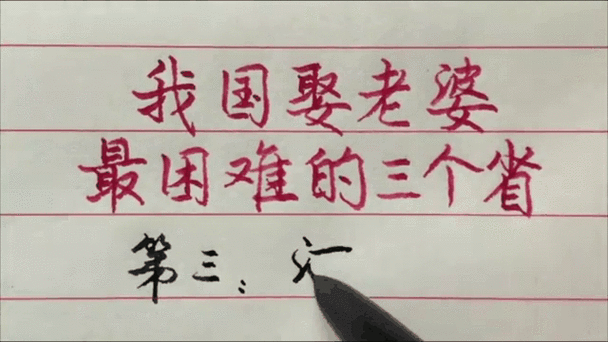 我国娶老婆
最困难的三个省
第三: